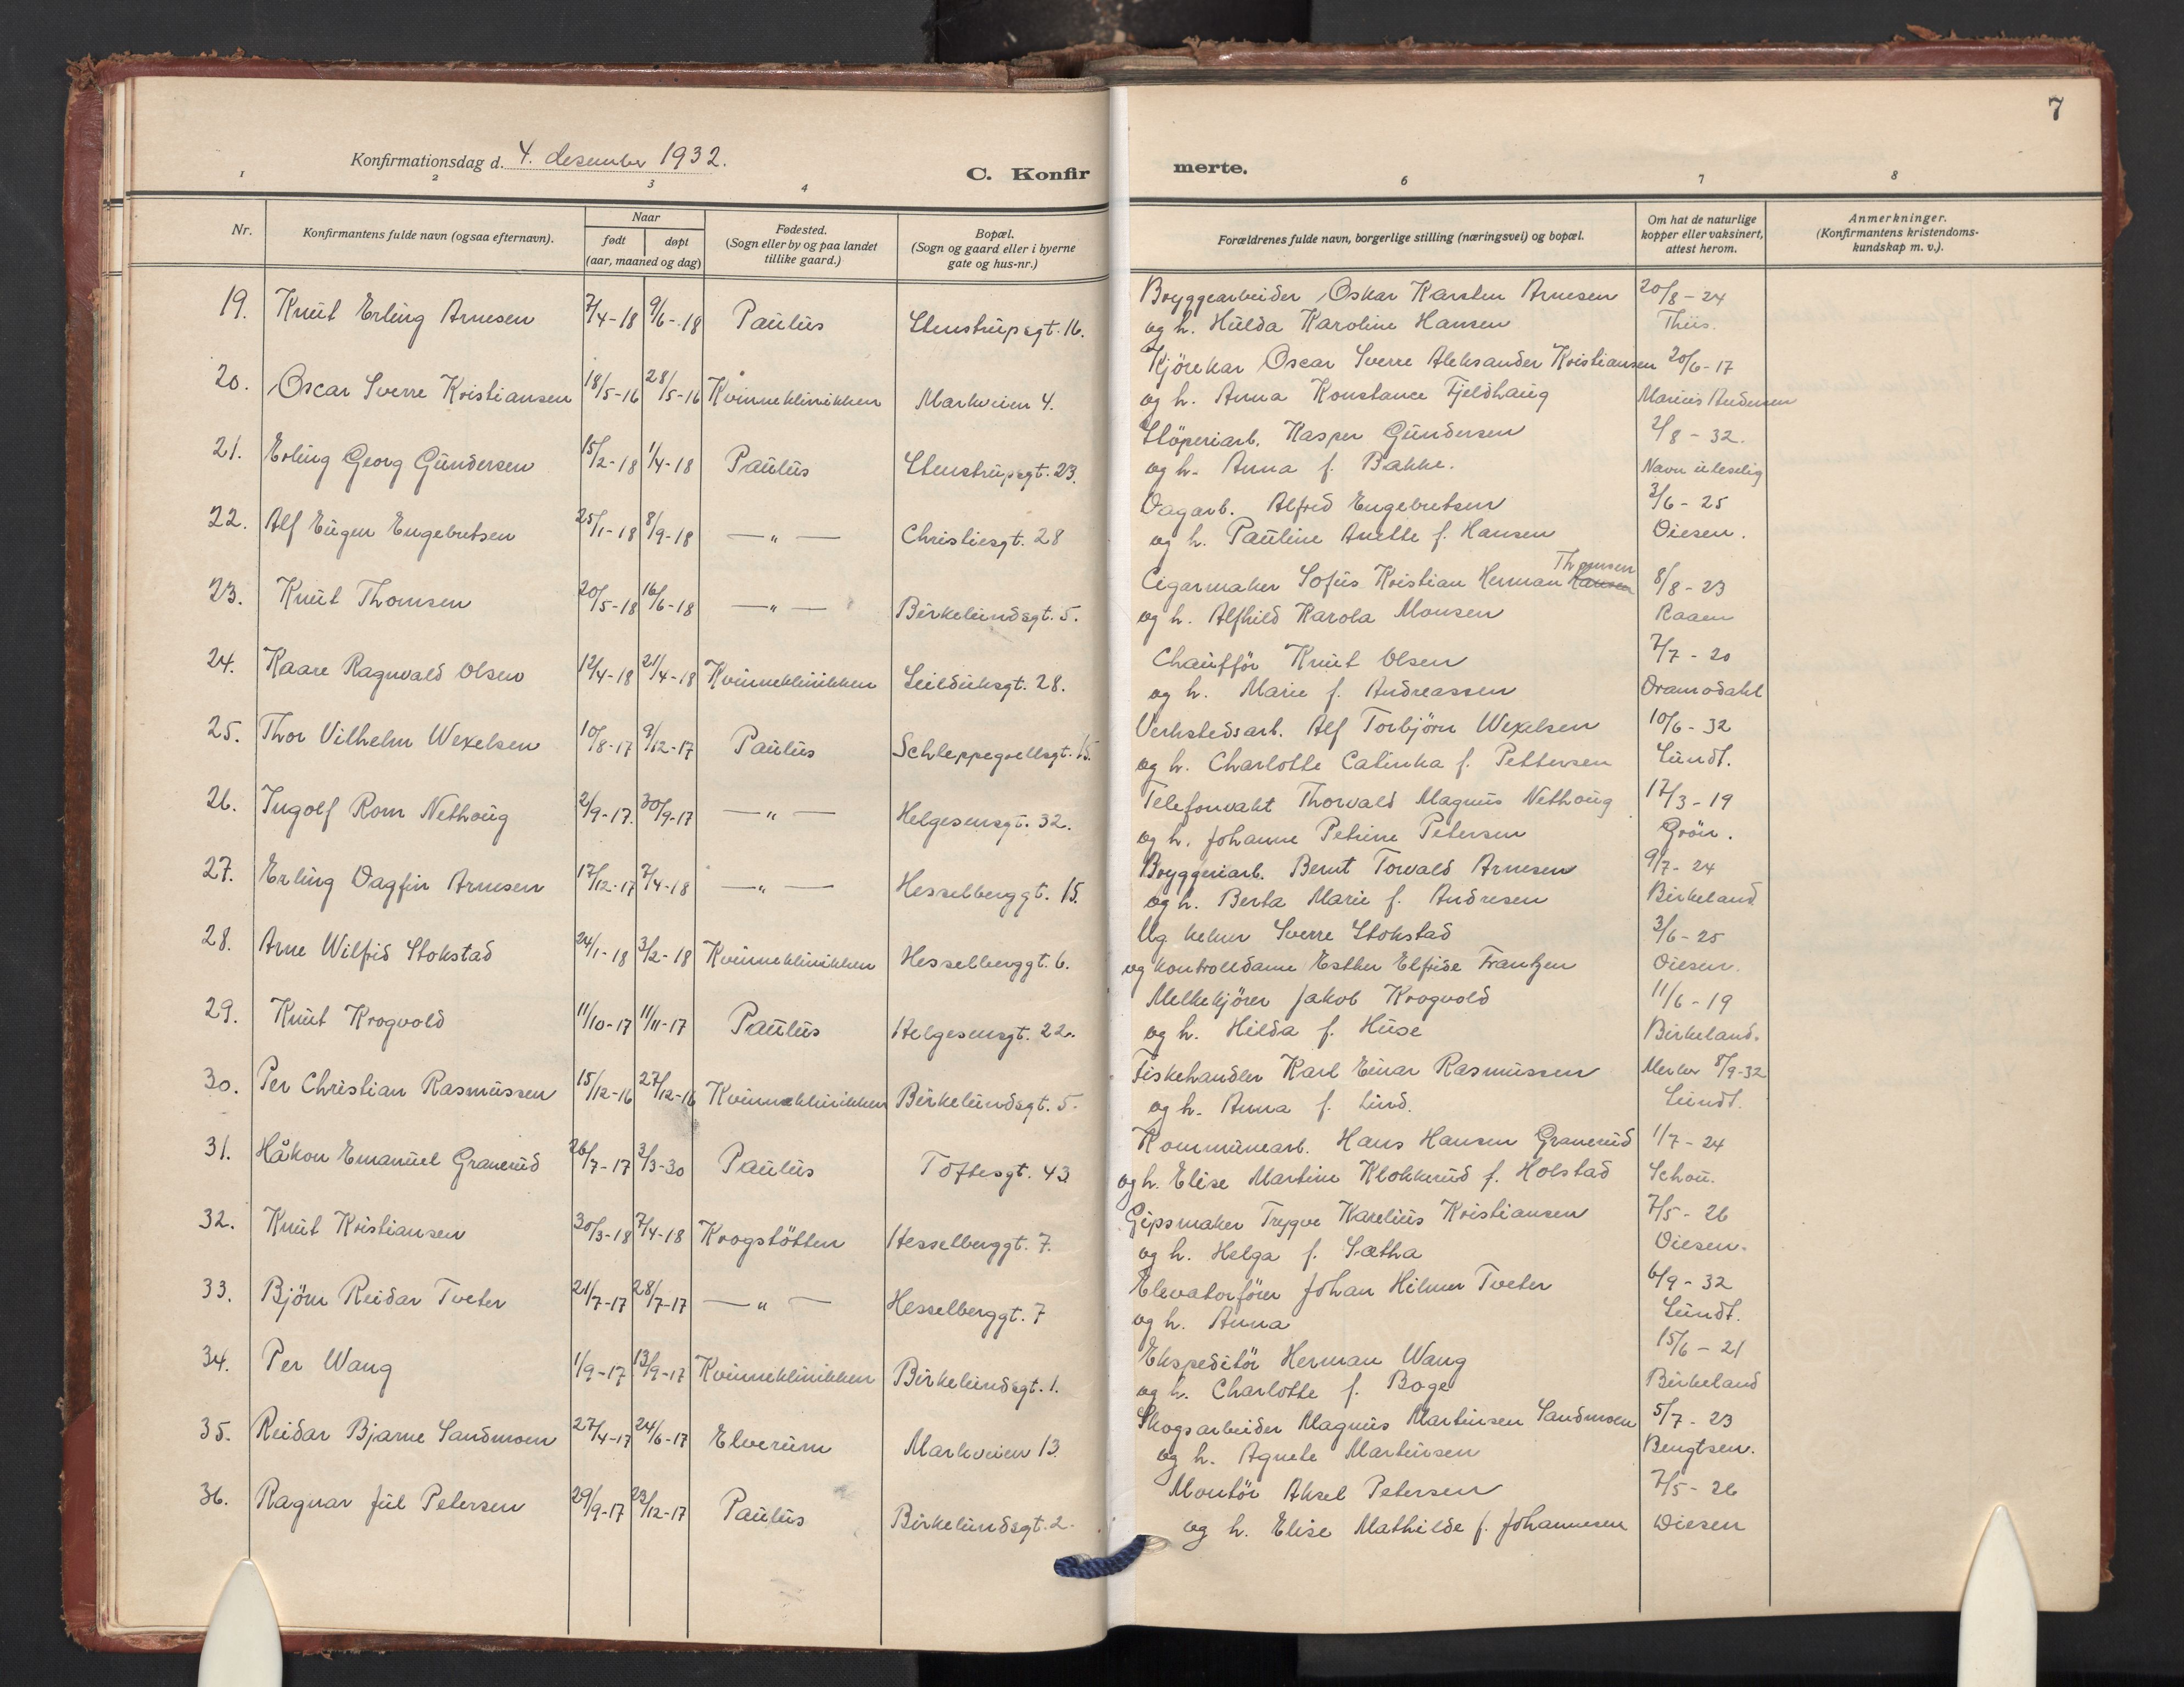 7
Konfirmationsdag d. 4. desember 1932.
C. Konfirmerte.
1 2 3 4 6 7 8
Nr.
Konfirmantens fulde navn (ogsaa efternavn).
Naar
født døpt
(aar, maaned og dag)
Fødested.
(Sogn eller by og paa landet
tillike gaard.)
Bopæl.
(Sogn og gaard eller i byerne
gate og hus-nr.)
Forældrenes fulde navn, borgerlige stilling (næringsvei) og bopæl.
Om hat de naturlige
kopper eller vaksinert,
attest herom.
Anmerkninger.
(Konfirmantens kristendoms-
kundskap m. v.).
19. Knut Erling Arnesen 7/4-18 9/6-18 Paulus Stenstrupsgt. 16. Bryggearbeider Oskar Karsten Arnesen 20/8-24
og h. Hulda Karoline Hansen Thiis.
20. Oscar Sverre Kristiansen 18/5-16 28/5-16 Kvinneklinikken Markveien 4. Kjörekar Oscar Sverre Aleksander Kristiansen 20/6-17
og h. Anna Konstance Fjeldhaug Marius Andersen
21. Erling Georg Gundersen 15/2-18 1/4-18 Paulus Stenstrupsgt. 23. Stöperiarb. Kasper Gundersen 2/8-32.
og h. Anna f. Bakke. Navn uleselig
22. Alf Eugen Engebretsen 25/1-18 8/9-18 —"— Christiesgt. 28 Dagarb. Alfred Engebretsen 3/6-25
og h. Pauline Anette f. Hansen Diesen.
23. Knut Thomsen 20/5-18 16/6-18 —"— Birkelundsgt. 5. Cigarmaker Sofus Kristian Herman Hansen Thomsen 8/8-23
og h. Alfhild Karola Monsen Raaen
24. Kaare Ragnvald Olsen 12/4-18 21/4-18 Kvinneklinikken Seilduksgt. 28. Chaufför Knut Olsen 7/7-20
og h. Marie f. Andreassen Dramsdahl
25. Thor Vilhelm Wexelsen 10/8-17 9/12-17 Paulus Schleppegrellsgt. 15. Verkstedsarb. Alf Torbjörn Wexelsen 10/6-32
og h. Charlotte Catinka f. Pettersen Lundt.
26. Ingolf Rom Nethoug 2/9-17. 30/9-17 —"— Helgesensgt. 32. Telefonvakt Thorvald Magnus Nethoug 17/3-19
og h. Johanne Petrine Petersen Grön.
27. Erling Dagfin Arnesen 17/12-17 7/4-18 —"— Hesselberggt. 15. Bryggeriarb. Bernt Torvald Arnesen 9/7-24
og h. Berta Marie f. Andresen Birkeland
28. Arne Wilfrid Stokstad 24/1-18 3/2-18 Kvinneklinikken Hesselberggt. 6. Ug. kelner Sverre Stokstad 3/6-25
og kontrolldame Esther Elfride Frantzen Diesen.
29. Knut Krogvold 11/10-17 11/11-17 Paulus Helgesensgt. 22. Melkekjörer Jakob Krogvold 11/6-19
og h. Hilda f. Huse Birkeland.
30. Per Christian Rasmussen 15/12-16 27/12-16 Kvinneklinikken Birkelundsgt. 5. Fiskehandler Karl Einar Rasmussen Merker 8/9-32
og h. Anna f. Lind. Lundt.
31. Håkon Emanuel Granerud 26/7-17 2/3-30 Paulus Toftesgt. 43 Kommunearb. Hans Hansen Granerud 1/7-24
og h. Elise Martine Klokkerud f. Holstad Schou.
32. Knut Kristiansen 30/3-18 7/4-18 Krogstötten Hesselberggt. 7. Gipsmaker Trygve Karelius Kristiansen 7/5-26
og h. Helga f. Sætha Diesen.
33. Björn Reidar Tveter 21/7-17 28/7-17 —"— Hesselberggt. 7 Elevatorförer Johan Hilmer Tveter 6/9-32
og h. Anna Lundt.
34. Per Wang 1/9-17 13/9-17 Kvinneklinikken Birkelundsgt. 1. Ekspeditör Herman Wang 15/6-21
og h. Charlotte f. Boge Birkeland
35. Reidar Bjarne Sandmoen 27/4-17 24/6-17 Elverum Markveien 13. Skogsarbeider Magnus Martinsen Sandmoen 5/7-23
og h. Agnete Martinsen Bengtsen.
36. Ragnar Jul Petersen 29/9-17 23/12-17 Paulus Birkelundsgt. 2. Montör Aksel Petersen 7/5-26
og h. Elise Mathilde f. Johannesen Diesen